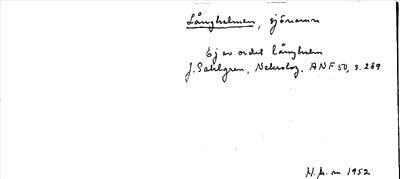 Långhelmen, sjönamn
Ej av ordet långhelm
J. Sahlgren, Nekrolog, ANF 50, s. 289
1952